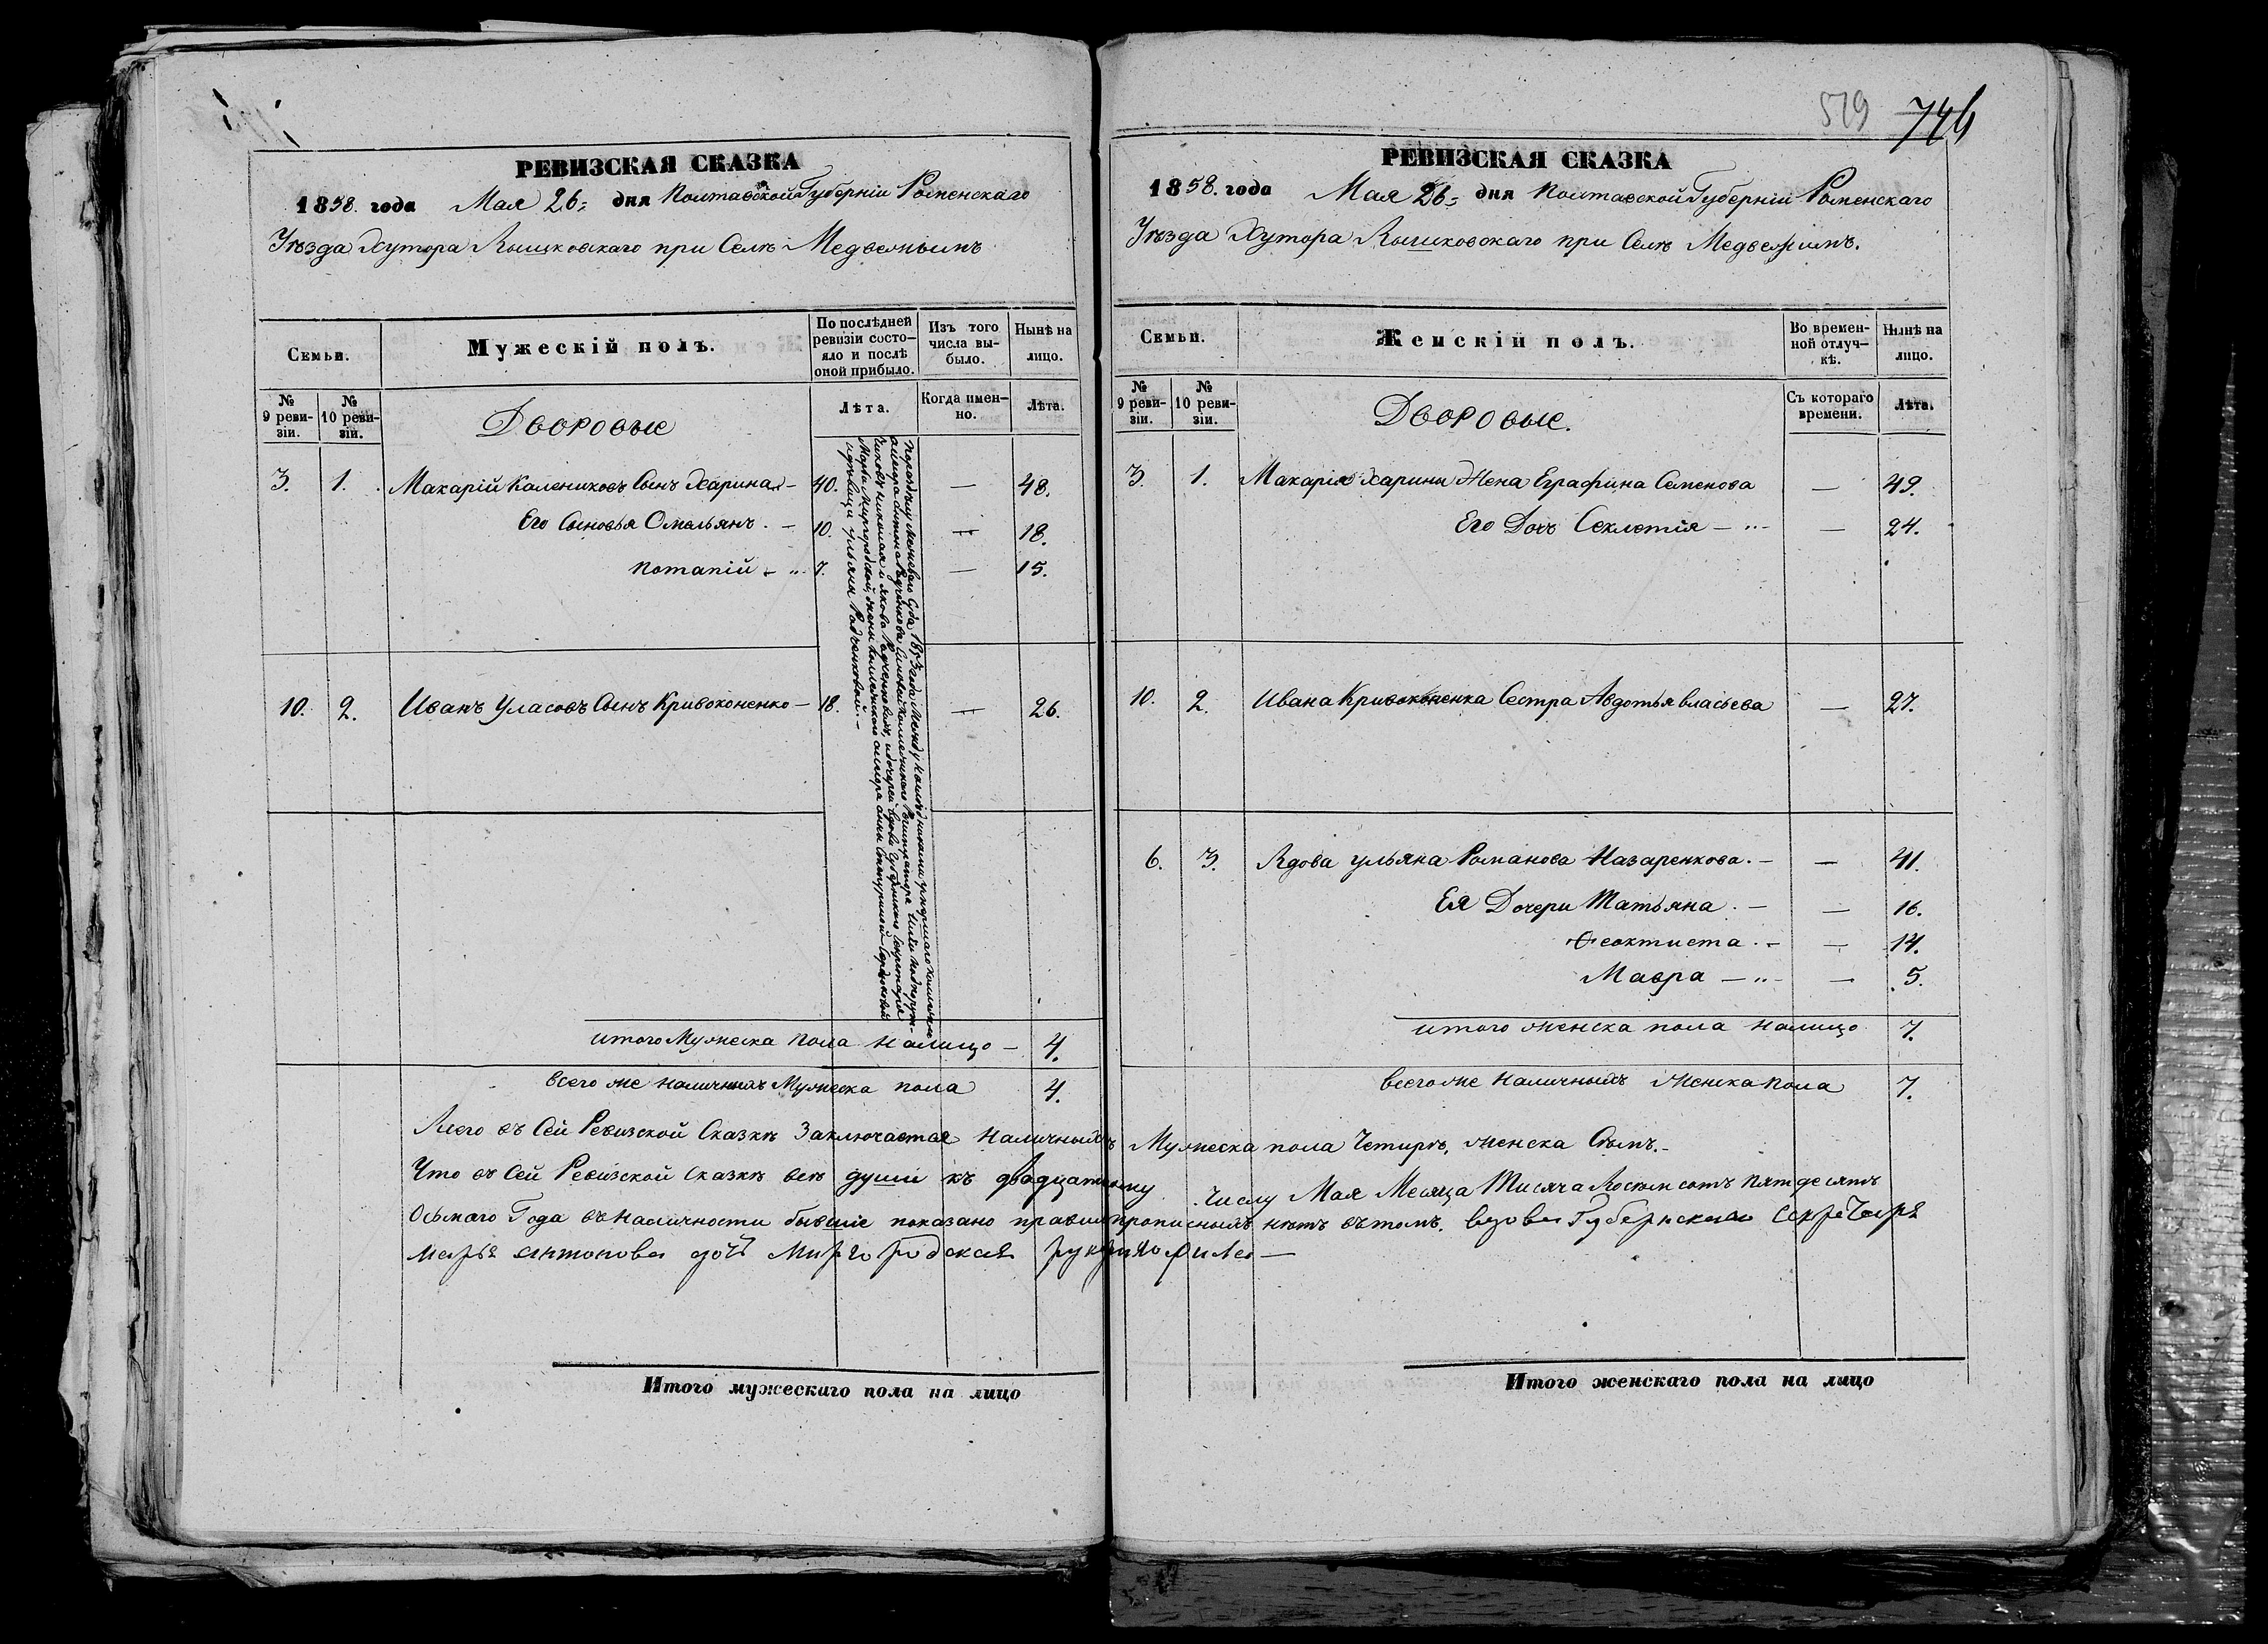 РЕВИЗСКАЯ СКАЗКА
1858. года Мая 26= дня Полтавской Губернiи Роменскаго
Уѣзда Хутора Лышковскаго при Селѣ Медвежьимъ
Семьи.
Мужескiй полъ.
По послѣдней ревизiи состо-
яло и послѣ
оной прибыло.
Изъ того
числа вы-
было.
Нынѣ на
лицо.
№
9 реви-
зiи.
№
10 реви-
зiи.
Дворовые
Лѣта.
Когда имен-
но.
Лѣта.
3. 1. Макарiй Калениковъ Сынъ Харина — 40. — 48.
Его Сыновья Омельянъ. — 10. — 18.
Потапiй — „ 7. — 15.
10. 2. Иванъ Уласовъ Сынъ Кривоконенко — 18. — 26.
итого Мужеска пола налицо — 4.
всего же наличныхъ Мужеска пола 4.
РЕВИЗСКАЯ СКАЗКА
519 746
1858. года Мая 26= дня Полтавской Губернiи Роменскаго
Уѣзда Хутора Лышковскаго при Селѣ Медвежимъ.
Семьи.
Женскiй полъ.
Во времен-
ной отлуч-
кѣ.
Нынѣ на
лицо.
№
9 реви-
зiи.
№
10 реви-
зiи.
Дворовые.
Съ котораго
времени.
Лѣта.
3. 1. Макарiя Харины Жена Еграфина Семенова — 49.
Его Дочь Секлетiя — „ — 24.
10. 2. Ивана Кривоконенка Сестра Авдотья власьева — 27.
6. 3. Вдова ульяна Романова Назаренкова. — — 41.
Ея Дочери Татьяна. — — 16.
Феоктиста. — — 14.
Мавра — „ — 5.
итого женска пола налицо 7.
всего же наличныхъ женска пола 7.
Всего въ Сей Ревизской Сказкѣ Заключается наличныхъ Мужеска пола Четыре, женска Семъ.
Что въ Сей Ревизской Сказкѣ всѣ души къ двадцатому числу Мая Месяца Тисяча Восемсотъ пятдесятъ
Осьмаго Года въ наличности бывшiе показано прописныхъ нѣтъ вътомъ. вдова Губернскаго Секретаря
марья антонова дочь Миргородская руку приложила —
Итого мужескаго пола на лицо
Итого женскаго пола на лицо